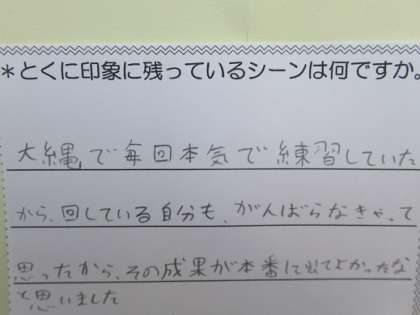 ＊とくに印象に残っているシーンは何ですか。
大縄で毎回本気で練習していた
から、回している自分も、がんばらなきゃって
思ったから、その成果が本番に出てよかったな
と思いました